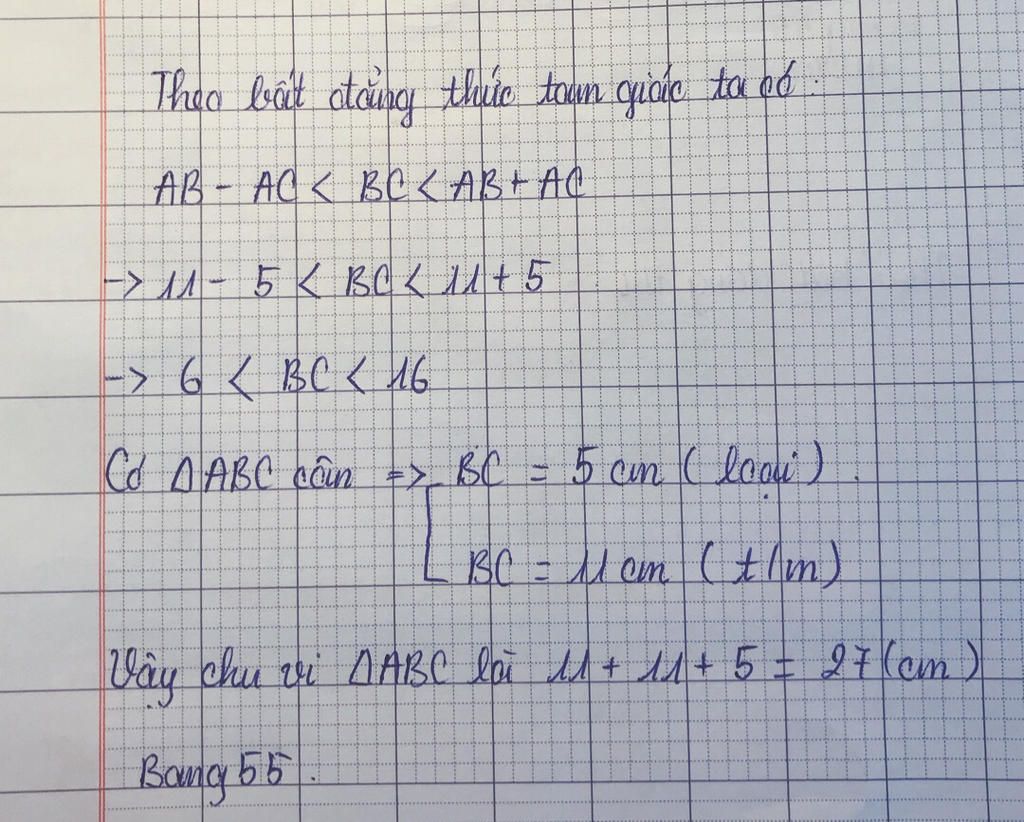 Theo bất đẳng thức tam giác ta có.
AB - AC < BC < AB + AC
-> 11 - 5 < BC < 11 + 5
-> 6 < BC < 16
Có ΔABC cân => BC = 5 cm (loại).
BC = 11 cm (t/m)
Vậy chu vi ΔABC là 11 + 11 + 5 = 27 (cm)
Bang 55.